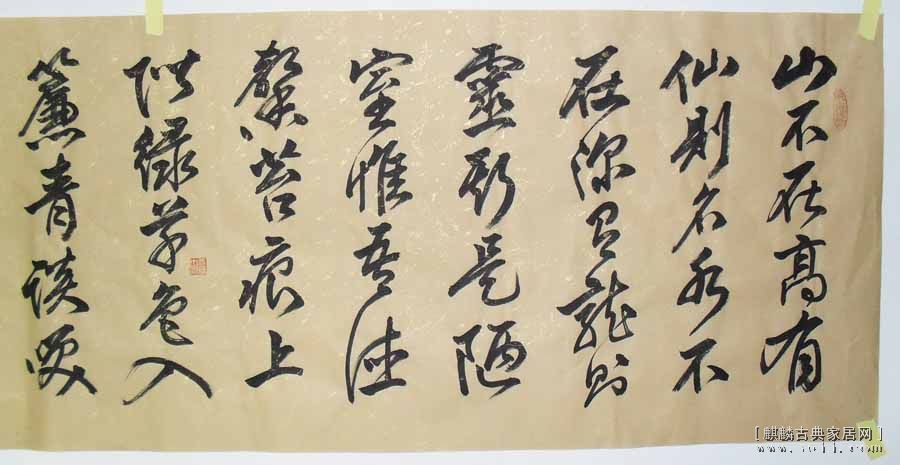 山不在高有
仙则名水不
在深有龍则
靈斯是陋
室惟吾德
馨苔痕上
階绿草色入
簾青谈笑
[麒麟古典家居网]